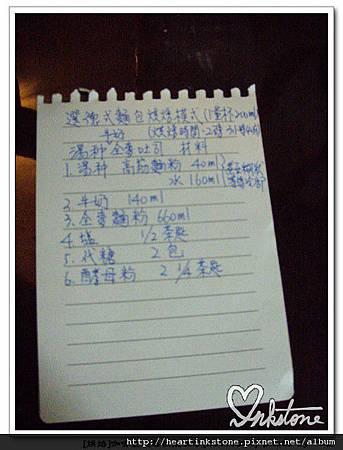 選德式麵包烘焙模式(1量杯=200ml)
牛奶 (烘焙時間:2號3小時40分)
湯种全麥吐司 材料
1. 湯种 高筋麵粉 40ml
水 160ml
2. 牛奶 140ml
3. 全麥麵粉 660ml
4. 塩 1/2 茶匙
5. 代糖 2包
6. 酵母粉 2 1/4 茶匙
Inkstone
http://heartinkstone.pixnet.net/album